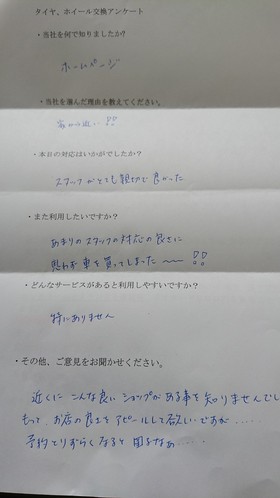 タイヤ、ホイール交換アンケート
・当社を何で知りましたか?
ホームページ
・当社を選んだ理由を教えてください。
家から近い!!
・本日の対応はいかがでしたか?
スタッフがとても親切で良かった
・また利用したいですか?
あまりのスタッフの対応の良さに
思わず車を買ってしました〜〜!!
・どんなサービスがあると利用しやすいですか?
特にありません
・その他、ご意見をお聞かせください。
近くにこんな良いショップがある事を知りませんでし
もっとお店の良さをアピールして欲しいですが......
予約とりずらくなると困るなぁ.....